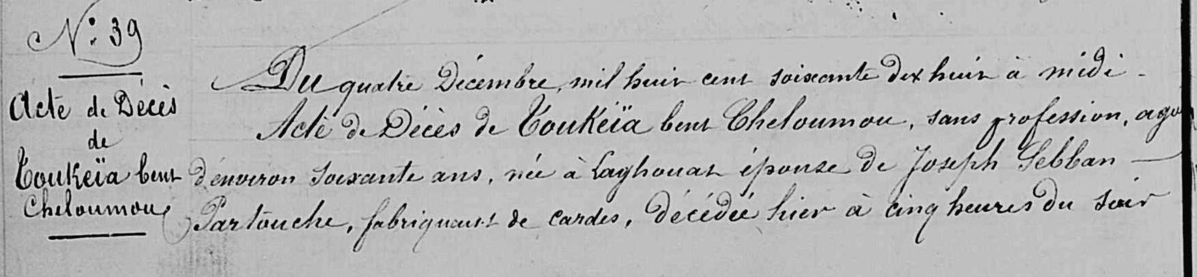 N° 39
Acte de Décès
de
Toukeïa bent
Cheloumou
Du quatre Décembre, mil huit cent soixante dix huit à midi.
Acte de Décès de Toukeïa bent Cheloumou, sans profession, agée
d'environ soixante ans, née à Laghouat épouse de Joseph Sebban
Partouche, fabriquant de cardes, décédée hier à cinq heures du soir